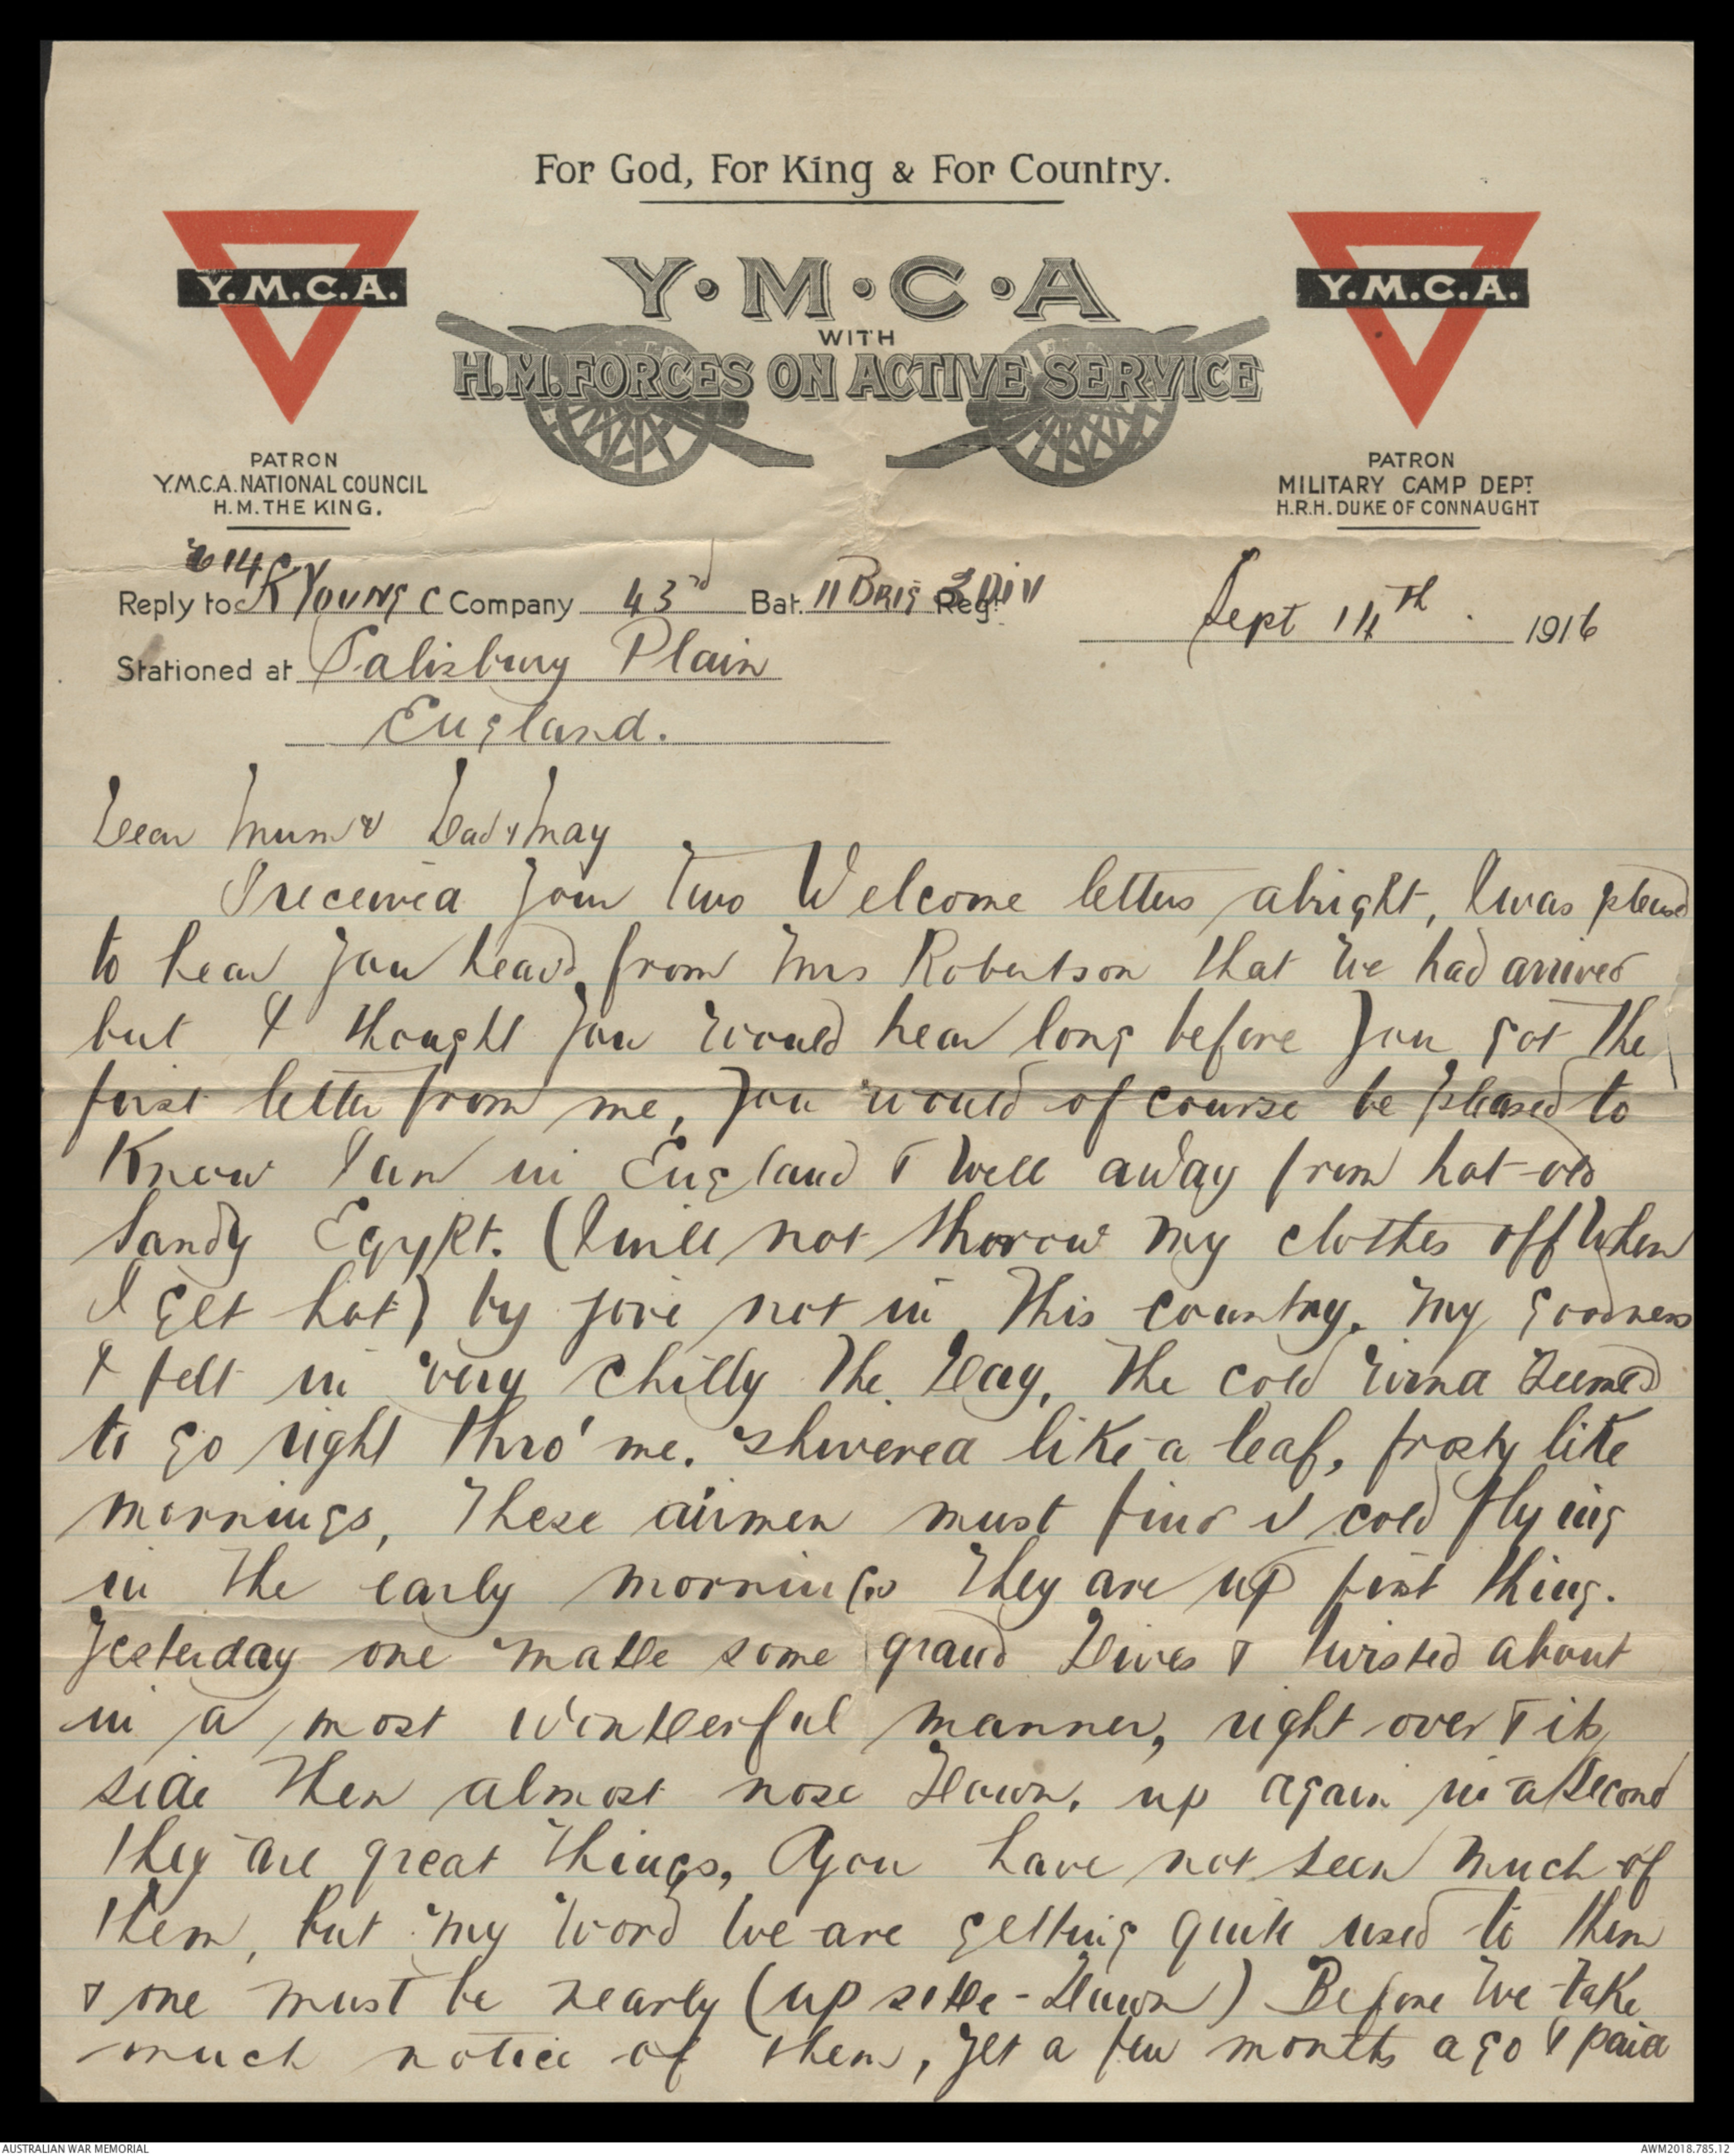 For God, For King & For Country.
Y.M.C.A.
Y·M·C·A
WITH
H.M. FORCES ON ACTIVE SERVICE
Y.M.C.A.
PATRON
Y.M.C.A. NATIONAL COUNCIL
H.M. THE KING.
PATRON
MILITARY CAMP DEPT.
H.R.H. DUKE OF CONNAUGHT
614
Reply to K Young C Company 43rd Bat. 11 Brig 3 Div Regt. Sept 14th. 1916
Stationed at Salisbury Plain
England.
Dear Mum & Dad & May
I received your two Welcome letters alright, I was pleased
to hear you heard from Mrs Robertson that we had arrived
but I thought you would hear long before you got the
first letter from me, you would of course be pleased to
know I am in England & well away from hot old
Sandy Egypt. (I will not thorow my clothes off when
I get hot) by jove not in this country. My goodness
I felt in very chilly the day, the cold wind seemed
to go right thro' me. shivered like a leaf, frosty like
mornings, These airmen must find it cold flying
in the early mornings they are up first thing.
Yesterday one made some grand dives & twisted about
in a most wonderful manner, right over & its
side then almost nose down, up again in a second
they are great things, you have not seen much of
them, but my word we are getting quite used to them
& one must be nearly (up side-down) Before we take
much notice of them, yet a few months ago I paid
AUSTRALIAN WAR MEMORIAL
AWM2018.785.12